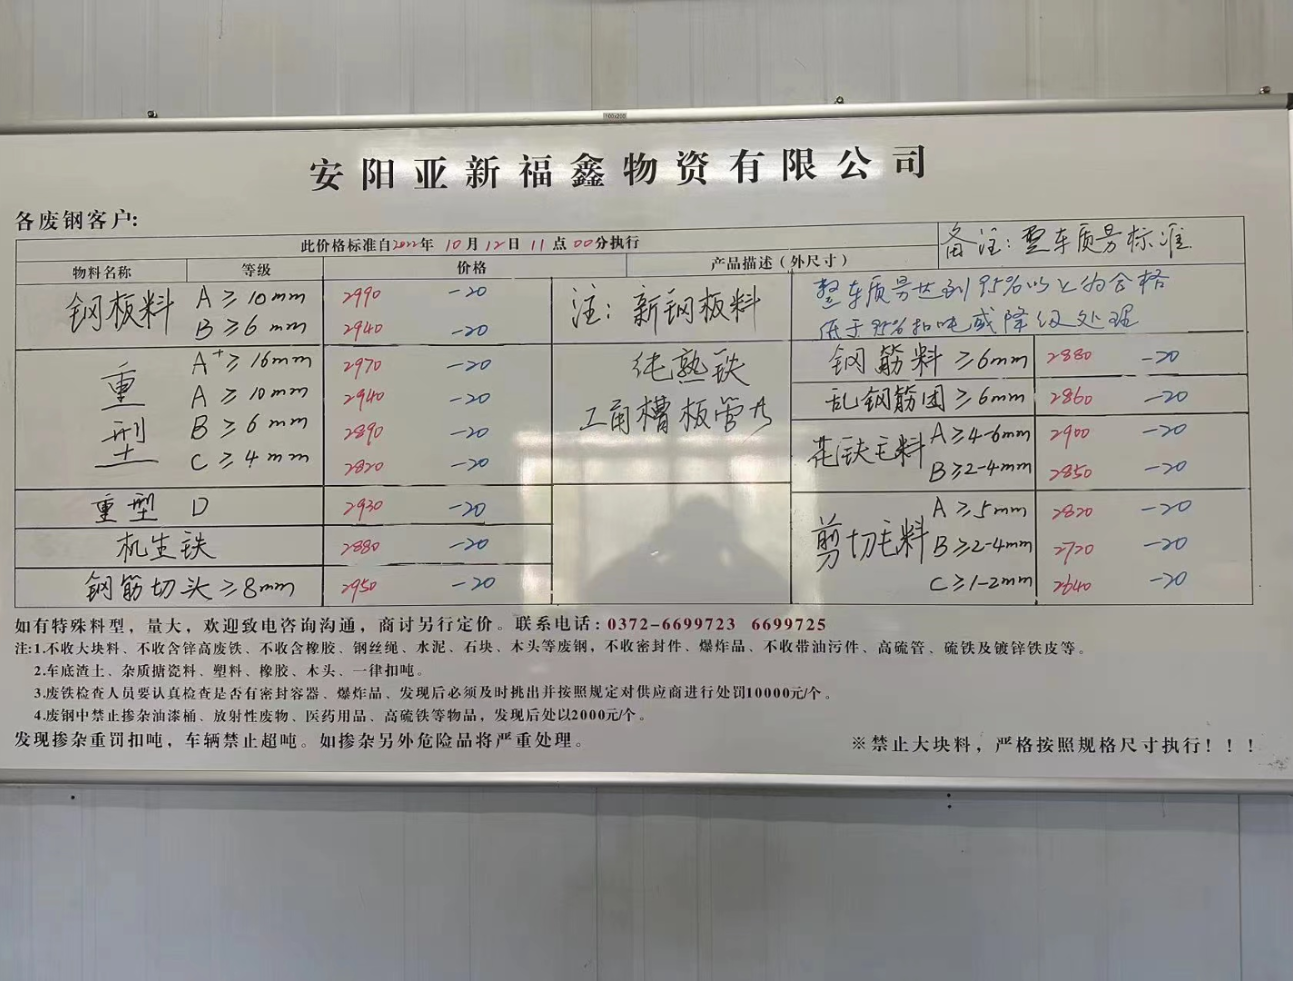 安阳亚新福鑫物资有限公司
各废钢客户:
此价格标准自2022年 10月12日 11点00分执行
备注: 整车质量标准
物料名称 等级 价格 产品描述(外尺寸)
钢板料 A≥10mm 2990 -20
B≥6mm 2940 -20
注: 新钢板料
整车质量达到95%以上为合格
低于95%扣吨或降级处理
重型 A+≥16mm 2970 -20
A≥10mm 2940 -20
B≥6mm 2890 -20
C≥4mm 2820 -20
纯熟铁
工角槽板管
重型 D 2930 -20
机生铁 2880 -20
钢筋切头≥8mm 2950 -20
钢筋料 ≥6mm 2880 -20
乱钢筋团≥6mm 2860 -20
花铁毛料 A≥4-6mm 2900 -20
B≥2-4mm 2850 -20
剪切毛料 A≥5mm 2820 -20
B≥2-4mm 2720 -20
C≥1-2mm 2640 -20
如有特殊料型，量大，欢迎致电咨询沟通，商讨另行定价。联系电话: 0372-6699723 6699725
注:1.不收大块料、不收含锌高废铁、不收含橡胶、钢丝绳、水泥、石块、木头等废钢，不收密封件、爆炸品、不收带油污件、高硫管、硫铁及镀锌铁皮等。
2.车底渣土、杂质搪瓷料、塑料、橡胶、木头、一律扣吨。
3.废铁检查人员要认真检查是否有密封容器、爆炸品、发现后必须及时挑出并按照规定对供应商进行处罚10000元/个。
4.废钢中禁止掺杂油漆桶、放射性废物、医药用品、高硫铁等物品，发现后处以2000元/个。
发现掺杂重罚扣吨，车辆禁止超吨。如掺杂另外危险品将严重处理。
※禁止大块料，严格按照规格尺寸执行！！！